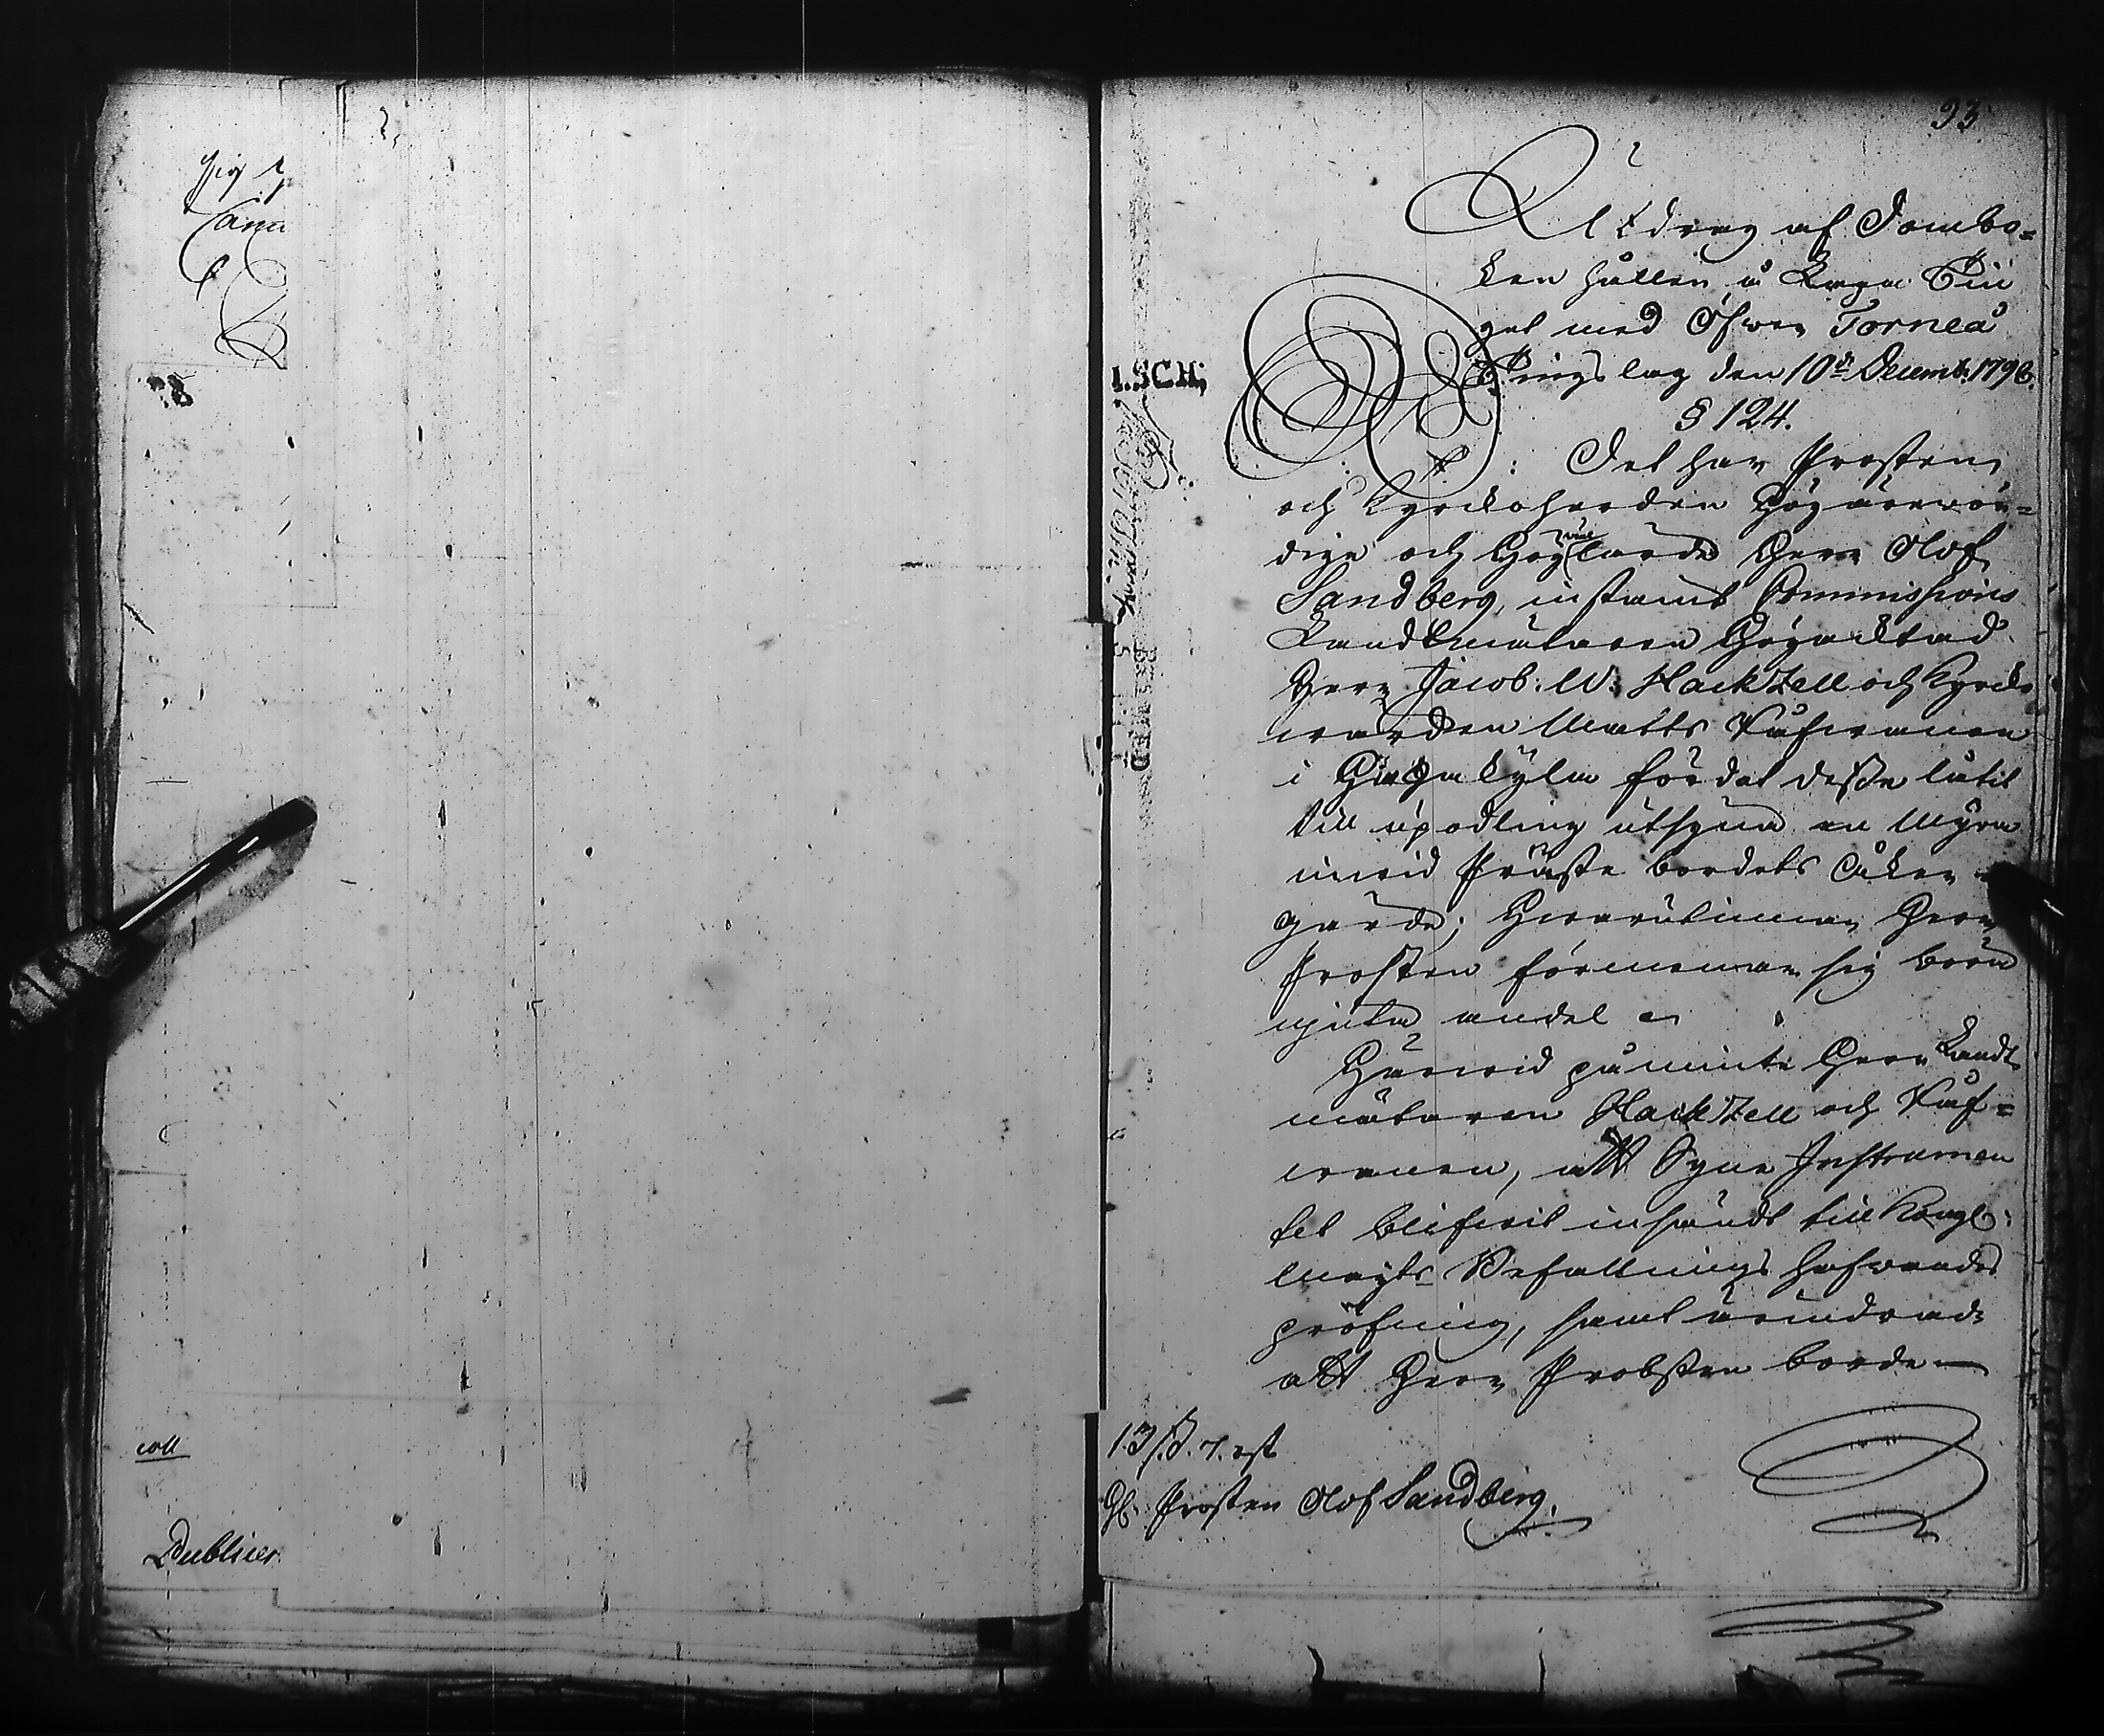 93
Utdrag af Dombo=
ken hållen å Laga Tin
get med Öfwer Torneå
Tingslag den 10de Decemb. 1798.
§ 124.
Det har Prosten
och Kyrckoherden Högärewör=
dige och Höglärde Herr Olof
Sandberg, instämt Commissions
Landtmätaren Högacktad
Herr Jacob: W: Hackzell och Kyrcko
wärden Matts
i för det desse låtit
till upodling utsyna en Myra
inwid Präste bordets Åker
gärde; Hwarutinnan Herr
Prosten förmenar sig böra
njuta andel
Härwid påminte Herr Landt
mätaren Hackzell och
wanen, att Syne Instrumen
tet blifwit insändt till Kongl:
Mayts Befallnings hafwandes
pröfning, samt ärindrade
att Herr Probsten borde
13 ß. 7. rst
Hr. Prosten Olof Sandberg.
sig
coll
Publicer.